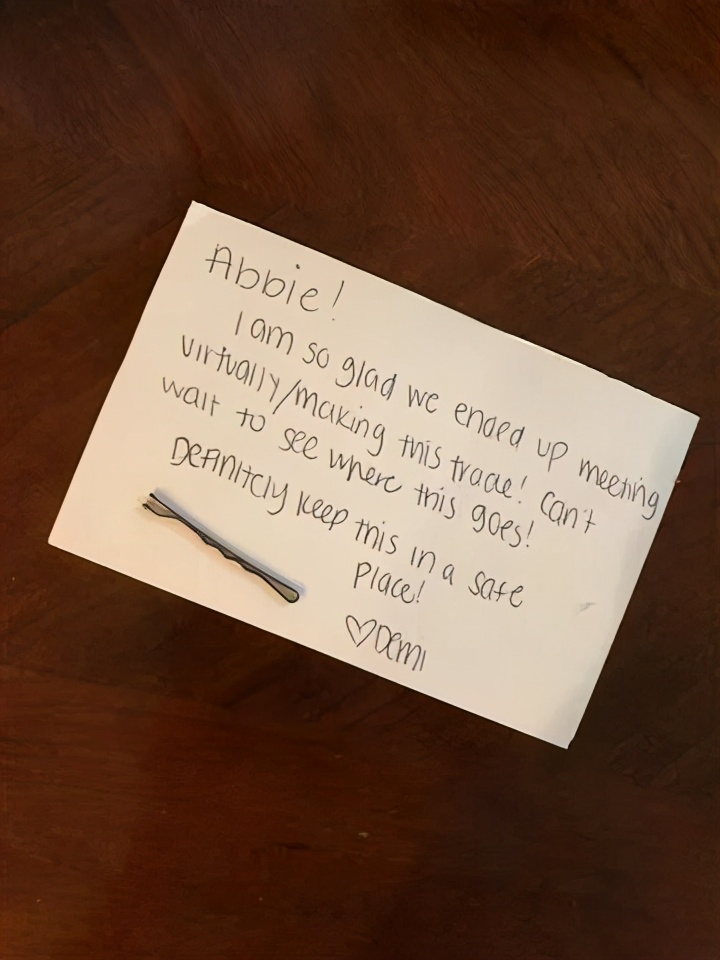 Abbie!
I am so glad we ended up meeting
virtually/making this trade! Can't
wait to see where this goes!
Definitely keep this in a safe
Place!
♡Demi